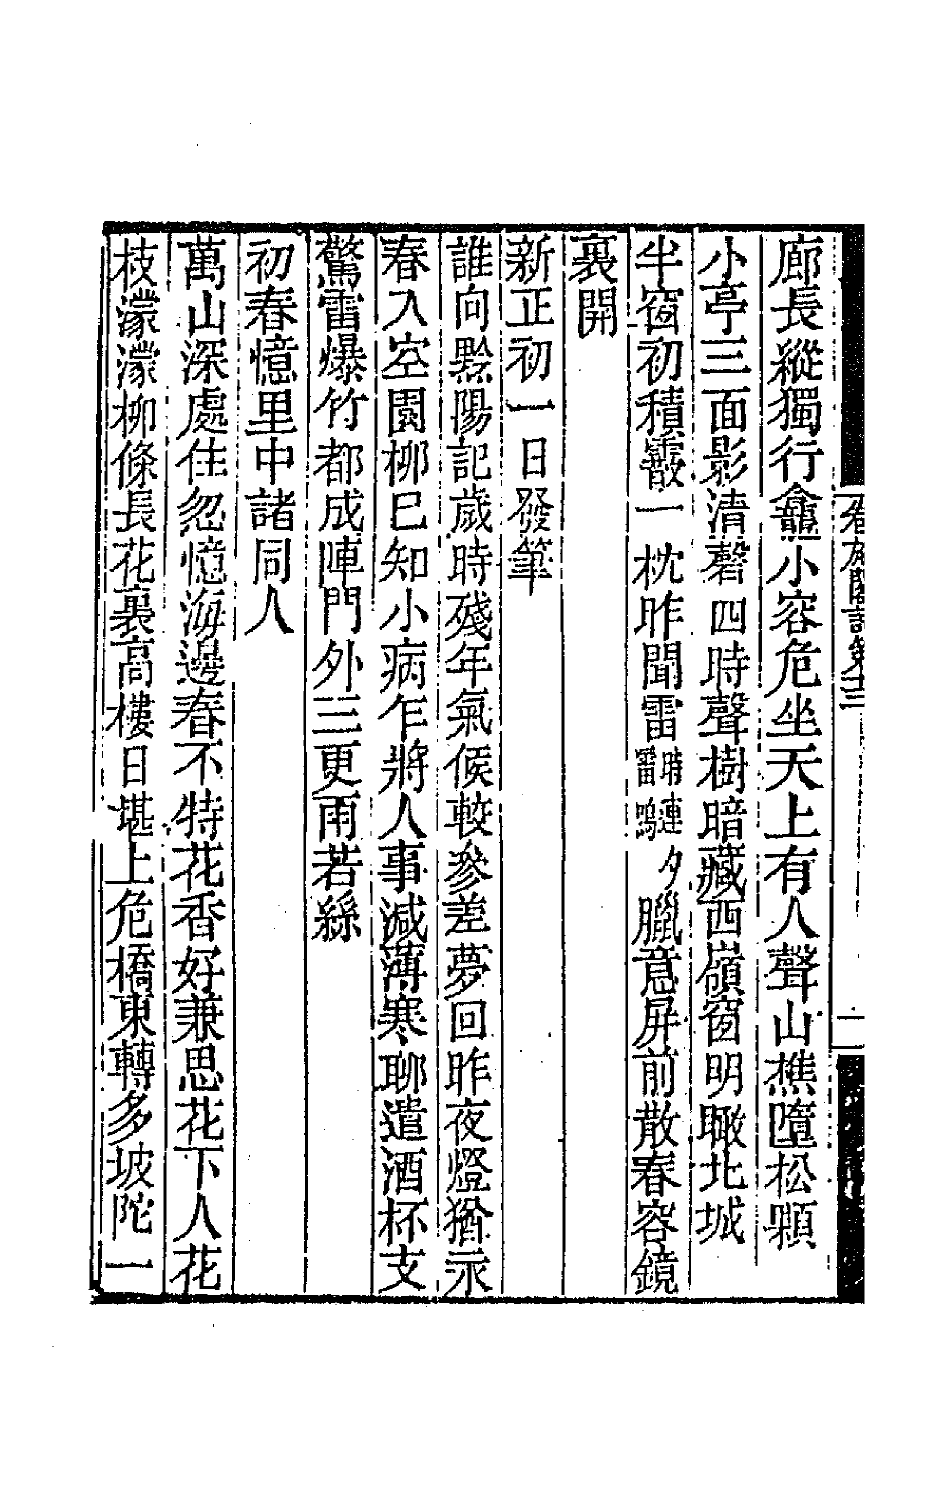 廊長縱獨行龕小容危坐天上有人聲山樵墮松顆
小亭三面影清磬四時聲樹暗藏西嶺窗明瞰北城
半窗初積霰一枕昨聞雷時連夕雷鳴臘意屏前散春容鏡
裏開
新正初一日發筆
誰向黟陽記歲時殘年氣候較參差夢回昨夜燈猶示
春入空園柳巳知小病乍將人事減薄寒聊遣酒杯支
驚雷爆竹都成陣門外三更雨若絲
初春憶里中諸同人
萬山深處住忽憶海邊春不特花香好兼思花下人花
枝濛濛柳條長花裏高樓日堪上危橋東轉多坡陀一
卷施閣詩第十三